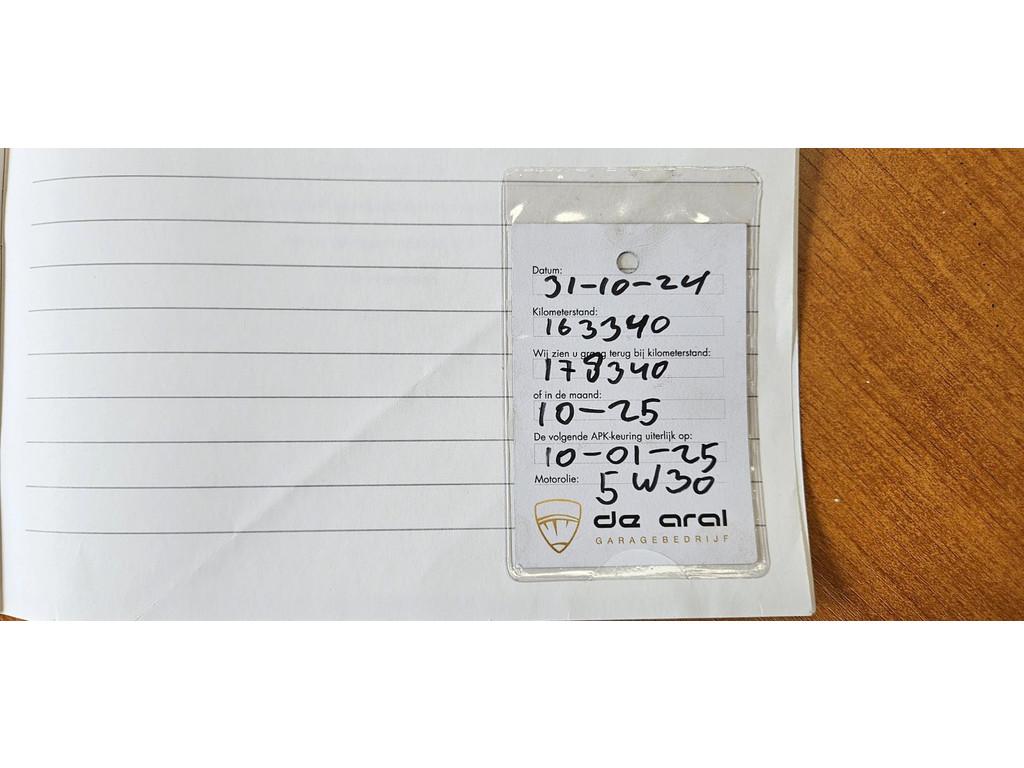 Datum:
31-10-24
Kilometerstand:
163340
Wij zien u graag terug bij kilometerstand:
178340
of in de maand:
10-25
De volgende APK-keuring uiterlijk op:
10-01-25
Motorolie: 5W30
de aral
GARAGEBEDRIJF